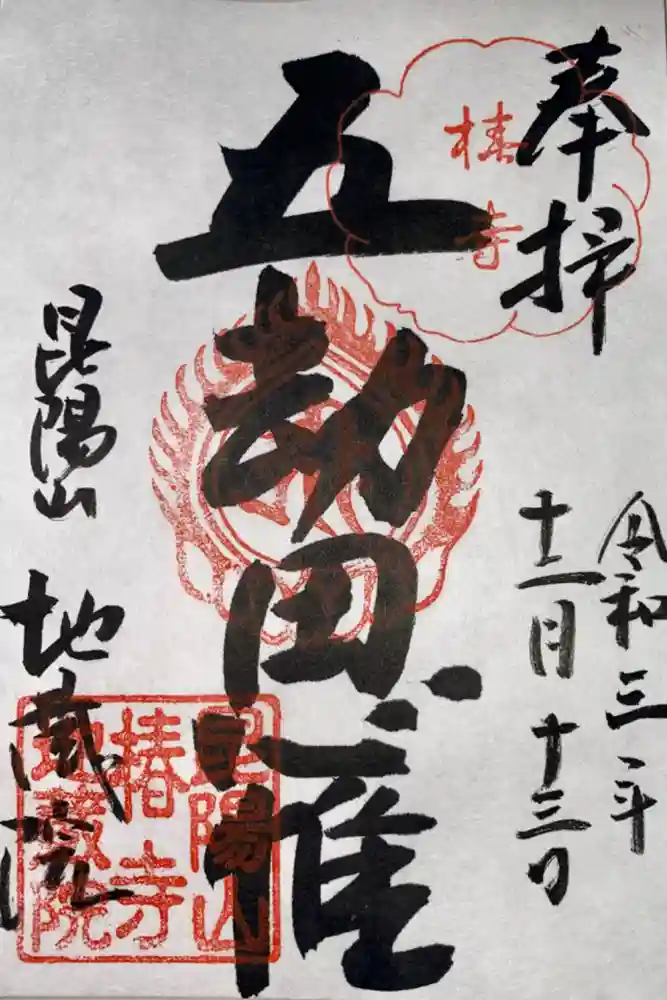 奉拝
椿寺
令和三年
十二月十三日
五劫思惟
昆陽山
地蔵院
昆陽山
椿寺
地蔵院